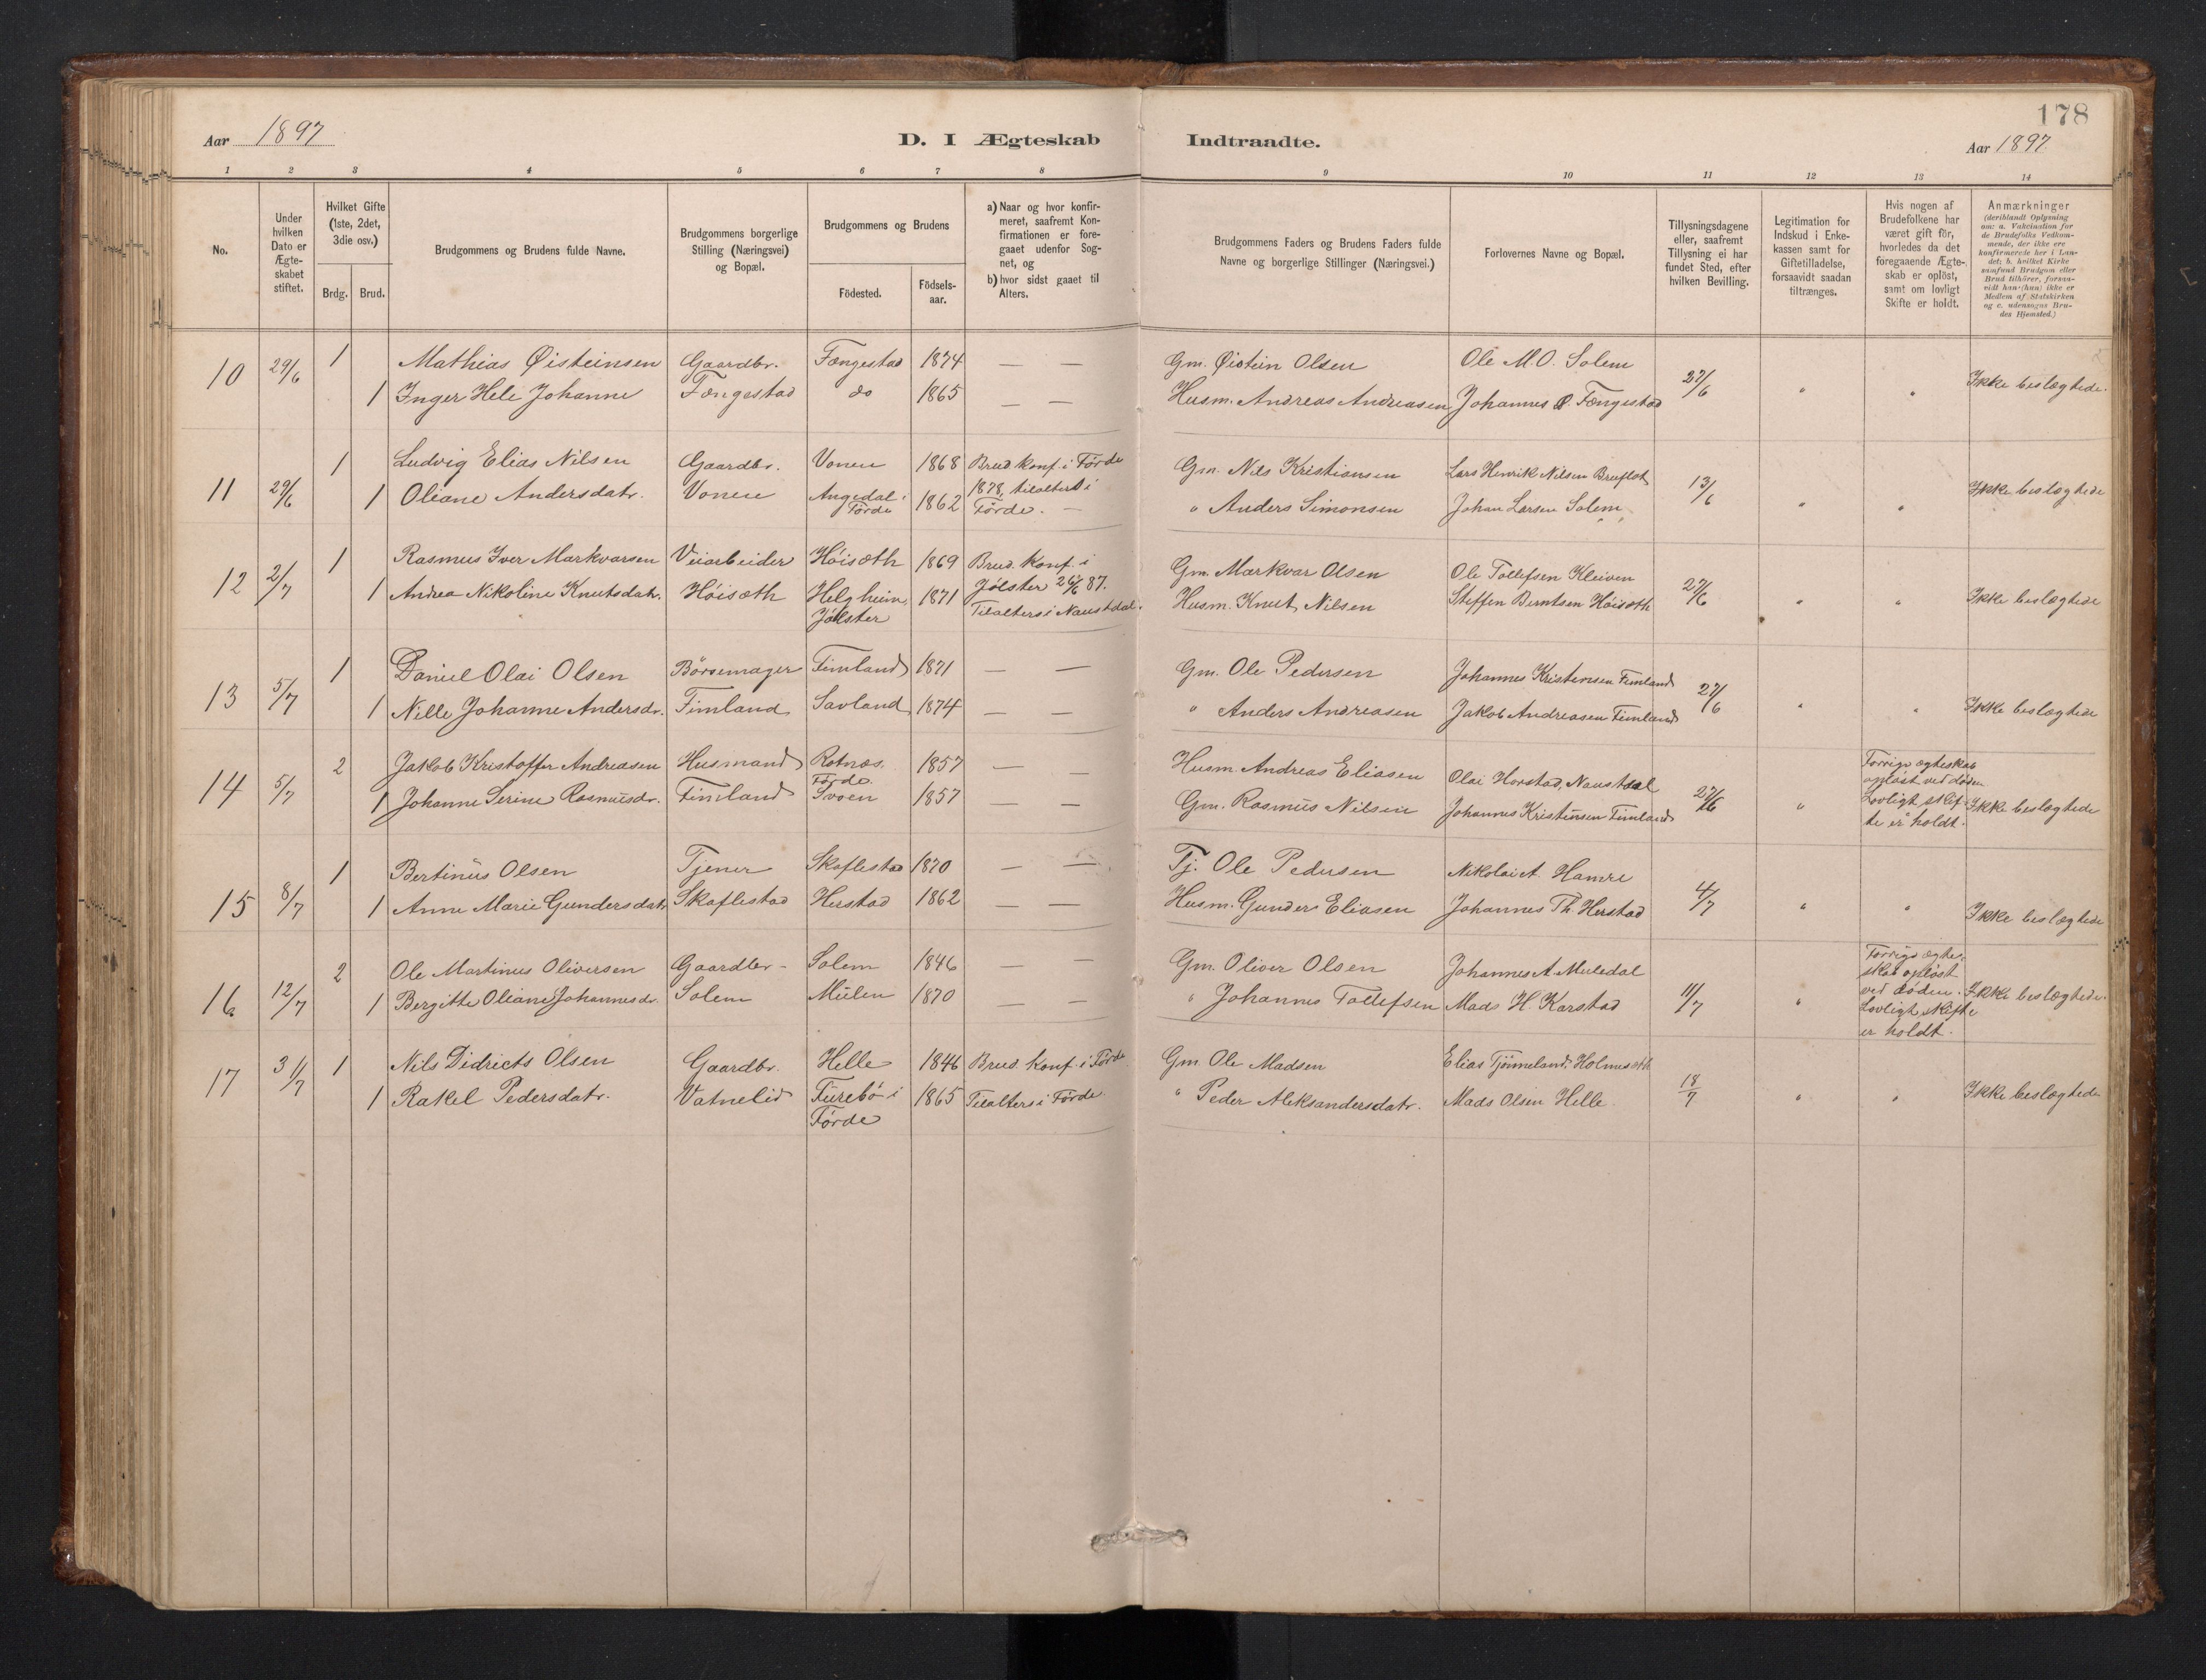 178
Aar 1897
D. I Ægteskab Indtraadte.
Aar 1897
1 2 3 4 5 6 7 8 9 10 11 12 13 14
No.
Under hvilken Dato er Ægte-skabet stiftet.
Hvilket Gifte (1ste, 2det, 3die osv.)
Brdg. Brud.
Brudgommens og Brudens fulde Navne.
Brudgommens borgerlige Stilling (Næringsvei) og Bopæl.
Brudgommens og Brudens
Födested. Födsels-aar.
a) Naar og hvor konfir-meret, saafremt Kon-firmationen er fore-gaaet udenfor Sog-net, og
b) hvor sidst gaaet til Alters.
Brudgommens Faders og Brudens Faders fulde Navne og borgerlige Stillinger (Næringsvei.)
Forlovernes Navne og Bopæl.
Tillysningsdagene eller, saafremt Tillysning ei har fundet Sted, efter hvilken Bevilling.
Legitimation for Indskud i Enke-kassen samt for Giftetilladelse, forsaavidt saadan tiltrænges.
Hvis nogen af Brudefolkene har været gift för, hvorledes da det foregaaende Ægte-skab er oplöst, samt om lovligt Skifte er holdt.
Anmærkninger (deriblandt Oplysning om: a. Vakcination for de Brudefolks Vedkom-mende, der ikke ere konfirmerede her i Lan-det; b. hvilket Kirke samfund Brudgom eller Brud tilhörer, forsaa-vidt han (hun) ikke er Medlem af Statskirken og c. udensogns Bru-des Hjemsted.)
10 29/6 1 Mathias Øisteinsen Gaardbr. Fængestad 1874 — — Gm. Øistein Olsen Ole M. O. Solem 27/6 " " Ikke beslægtede.
1 Inger Hele Johanne Fængestad do 1865 — — Husm. Andreas Andreasen Johannes O. Fængestad
11 29/6 1 Ludvig Elias Nilsen Gaardbr. Vonen 1868 Brud konf. i Förde Gm. Nils Kristiansen Lars Henrik Nilsen Bruflot 13/6 " " Ikke beslægtede
1 Oliane Andersdatr. Vonen Angedal i Förde 1862 1878, tilalters i Förde. — " Anders Simonsen Johan Larsen Solem
12 2/7 1 Rasmus Iver Markvarsen Veiarbeider Höisæth 1869 Brud. Konf. i Gm. Markvar Olsen Ole Tollefsen Kleiven 27/6 " " Ikke beslægtede
1 Andrea Nikoline Knutsdatr. Höisæth Helgheim, Jölster 1871 Jölster 26/6 87. Tilalters i Naustdal. Husm. Knut Nilsen Steffen Berntsen Höisæth
13 5/7 1 Daniel Olai Olsen Börsemager Fimland 1871 — — Gm. Ole Pedersen Johannes Kristensen Fimland 27/6 " " Ikke beslægtede
1 Nille Johanne Andersdr. Fimland Savland 1874 — — " Anders Andreasen Jakob Andreasen Fimland
14 5/7 2 Jakob Kristoffer Andreasen Husmand Rotnæs. Förde 1857 — — Husm Andreas Eliasen Olai Horstad, Naustdal 27/6 " Forrige ægteskab oplöst ved döden Lovligt skif-te er holdt. Ikke beslægtede
1 Johanne Serine Rasmusdr. Fimland Svoen 1857 — — Gm. Rasmus Nilsen Johannes Kristensen Fimland
15 8/7 1 Bertinus Olsen Tjener Skaflestad 1870 — — Tj. Ole Pedersen Nikolai A. Hamre 4/7 " " Ikke beslægtede
1 Anne Marie Gundersdatr Skaflestad Herstad 1862 — — Husm. Gunder Eliasen Johannes Th. Herstad
16 12/7 2 Ole Martinus Oliversen Gaardbr- Solem 1846 — — Gm. Oliver Olsen Johannes A. Muledal 11/7 " Forrige ægte-skab oplöst ved döden. Lovligt skifte er holdt. Ikke beslægtede.
1 Bergitte Oliane Johannesdr. Solem Mulen 1870 — — " Johannes Tollefsen Mads H. Karstad
17 31/7 1 Nils Didricts Olsen Gaardbr. Helle 1846 Brud. Konf. i Förde Gm. Ole Madsen Elias Tjönneland, Holmesæth 18/7 " " Ikke beslægtede
1 Rakel Pedersdatr. Vatnelid Furebö i Förde 1865 Tilalters i Förde " Peder Aleksandersdatr. Mads Olsen Helle